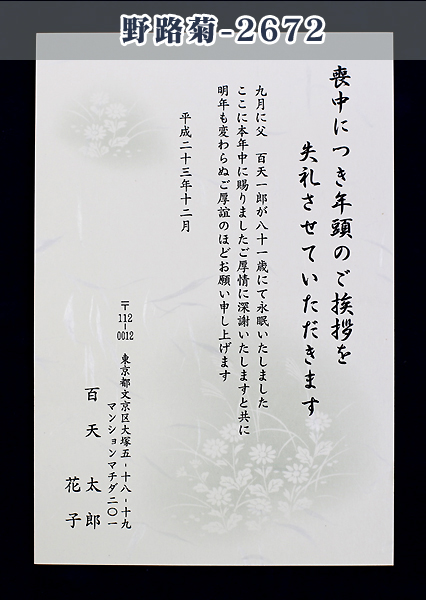 野路菊-2672
喪中につき年頭のご挨拶を
失礼させていただきます
九月に父　百天一郎が八十一歳にて永眠いたしました
ここに本年中に賜りましたご厚情に深謝いたしますと共に
明年も変わらぬご厚誼のほどお願い申し上げます
平成二十三年十二月
〒112-0012　東京都文京区大塚五-十八-十九
マンションマチダ二〇一
百天　太郎
花子